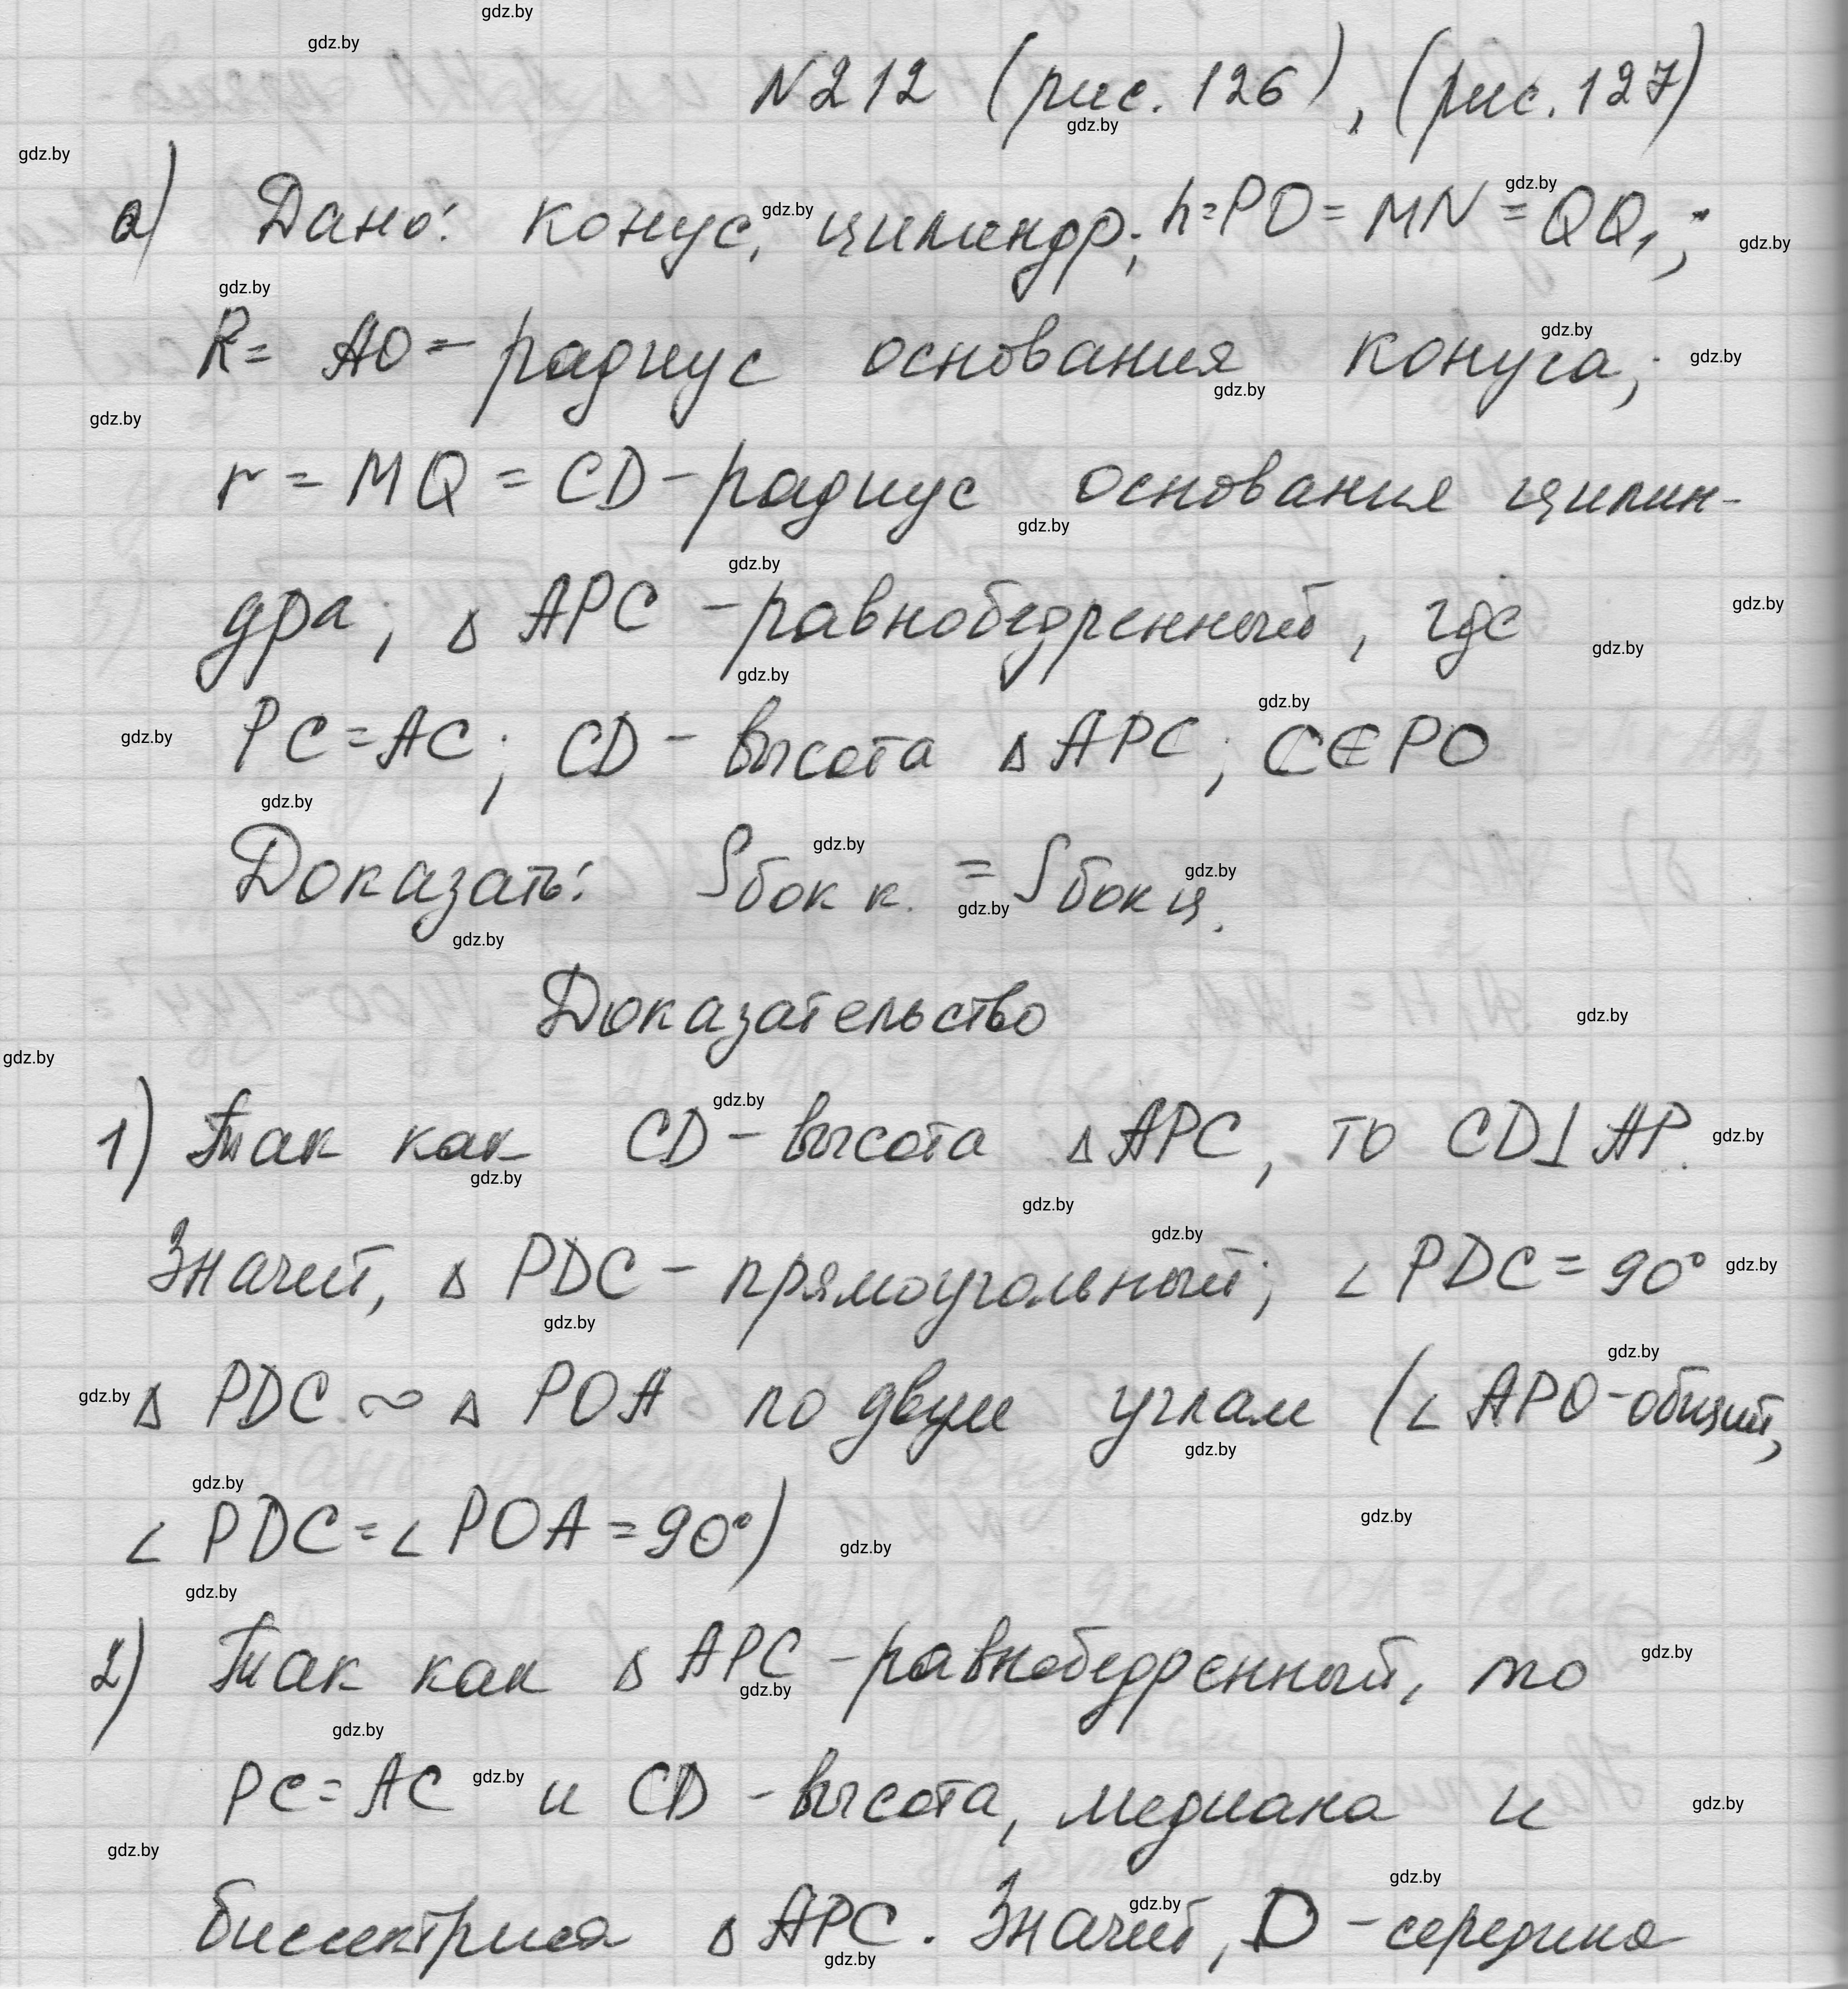 N212 (рис. 126), (рис. 127)
а) Дано: конус, цилиндр; h=PO=MN=QQ₁;
R= AO – радиус основания конуса;
r = MQ = CD – радиус основания цилин-
дра; Δ APC – равнобедренный, где
PC=AC; CD – высота Δ APC; C∈PO
Доказать: Sбок к. = Sбок ц.
Доказательство
1) Так как CD – высота Δ APC, то CD⊥AP.
Значит, Δ PDC – прямоугольный; ∠ PDC = 90°
Δ PDC ∾ Δ POA по двум углам (∠ APO – общий,
∠ PDC = ∠ POA = 90°)
2) Так как Δ APC – равнобедренный, то
PC = AC и CD – высота, медиана и
биссектриса Δ APC. Значит, D – середина
gdz.by